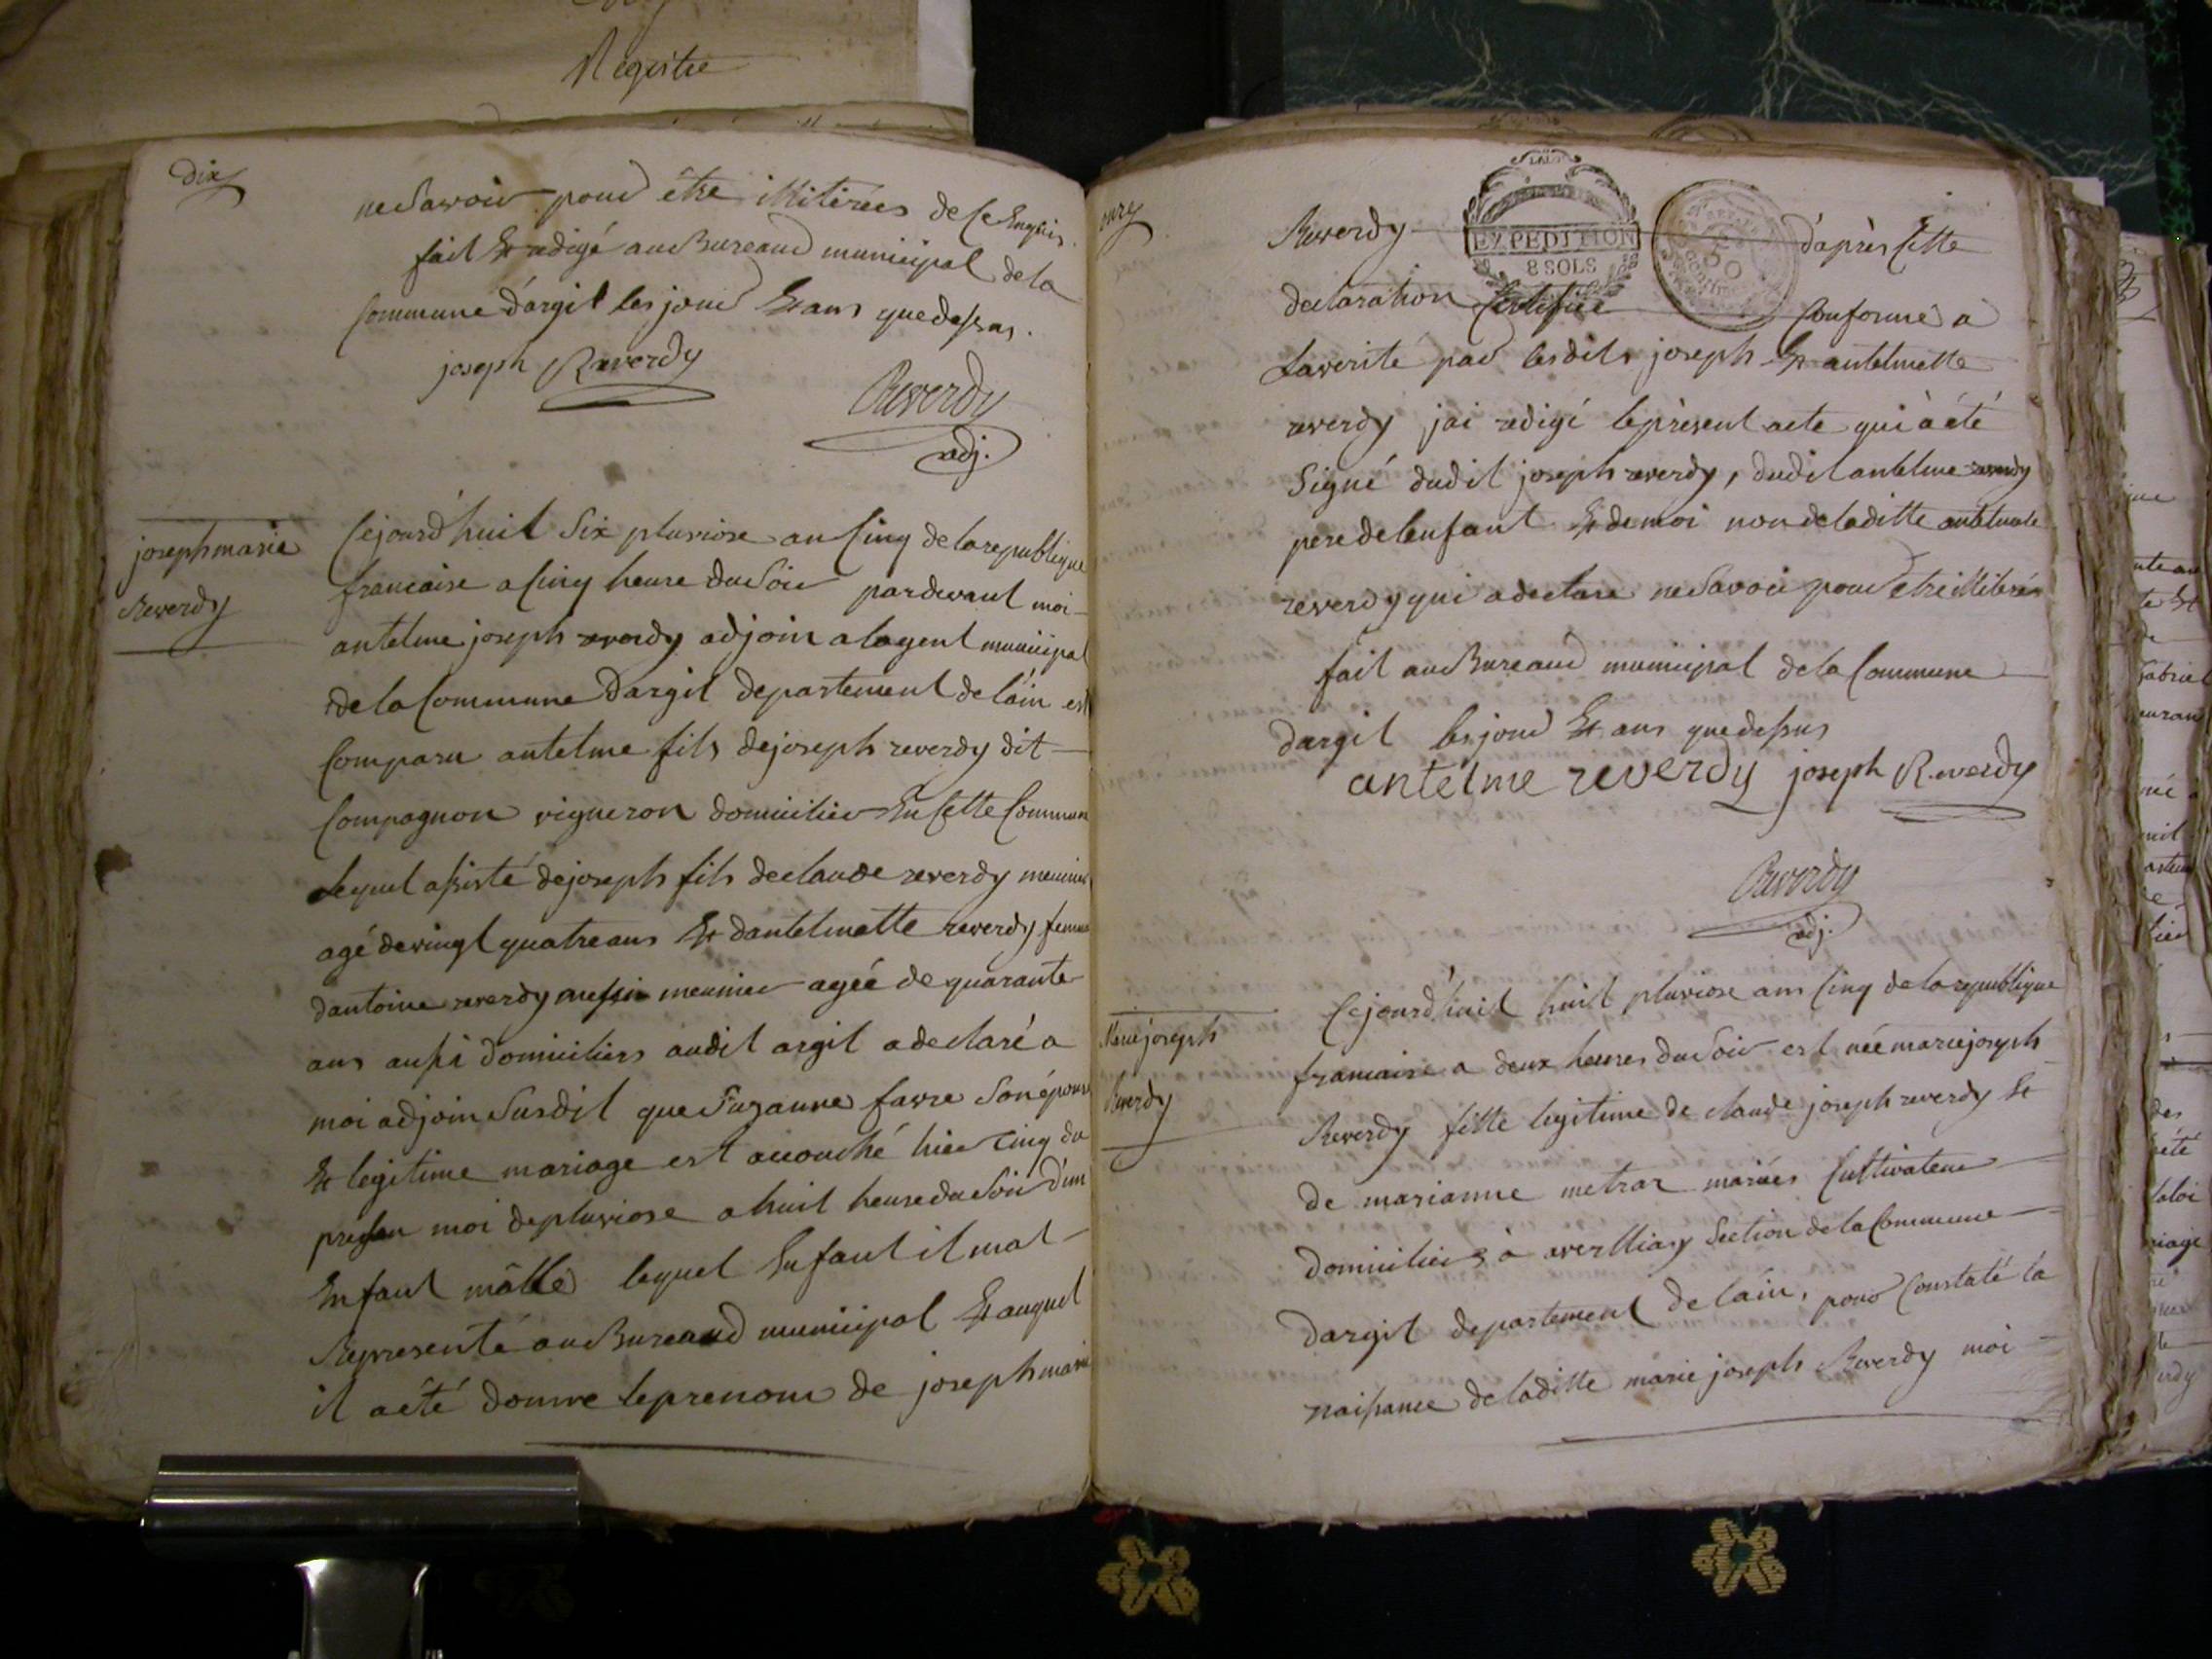 Registre
dix
ne Savoir pour être illitérées de ce Enquis
fait Et redigé au Bureaud municipal de la
Commune d'argit les jour Et ans que dessus.
joseph Reverdy
Reverdy
adj.
joseph marie
Reverdy
Cejourd'huit Six pluviose an Cinq de la republique
francaise a Cinq heure du Soir pardevant moi
antelme joseph reverdy adjoin a lagent municipal
de la Commune dargit departement de láin est
Comparu antelme fils de joseph reverdy dit
Compagnon vigneron domicilier En Cette Commun
Lequel assisté de joseph fils de claude reverdy meunier
agé de vingt quatre ans Et dantelmette reverdy femme
dantoine reverdy aussi meunier agée de quarante
ans aussi domiciliers audit argit a declaré a
moi adjoin Susdit que Suzanne favre Son épouse
Et legitime mariage est accouché hier Cinq du
presen moi de pluviose a huit heure du Soir d'un
Enfant mâlle lequel Enfant il mat
Representé au Bureaud municipal Et auquel
il aété donne le prenom de joseph marie
onze
Reverdy d'après Cette
EXPEDITION
8 SOLS
declaration Certifiée Conforme a
La verité par lesdits joseph Et antelmette
reverdy jai redigé le présent acte qui à été
Signé dudit joseph reverdy, dudit antelme reverdy
pere de lenfant Et de moi non de laditte antelmete
reverdy qui a declare ne Savoir pour etre illiterée
fait au Bureaud municipal de la Commune
dargit les jour Et ans que dessus
antelme reverdy joseph Reverdy
Reverdy
adj.
Marie joseph
Reverdy
Cejourd'huit huit pluviose ans Cinq de la republique
francaise a deux heures du Soir est née marie joseph
Reverdy fille legitime de claude joseph reverdy Et
de marianne metraz mariées Cultivateur
domiciliers à averlliaz Section de la Commune
dargit departement de láin, pour Constaté la
naissance de laditte marie joseph Reverdy moi